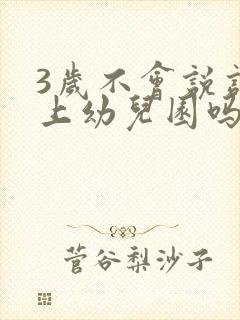 3歲不會説
上幼兒園吗
菅谷梨沙子